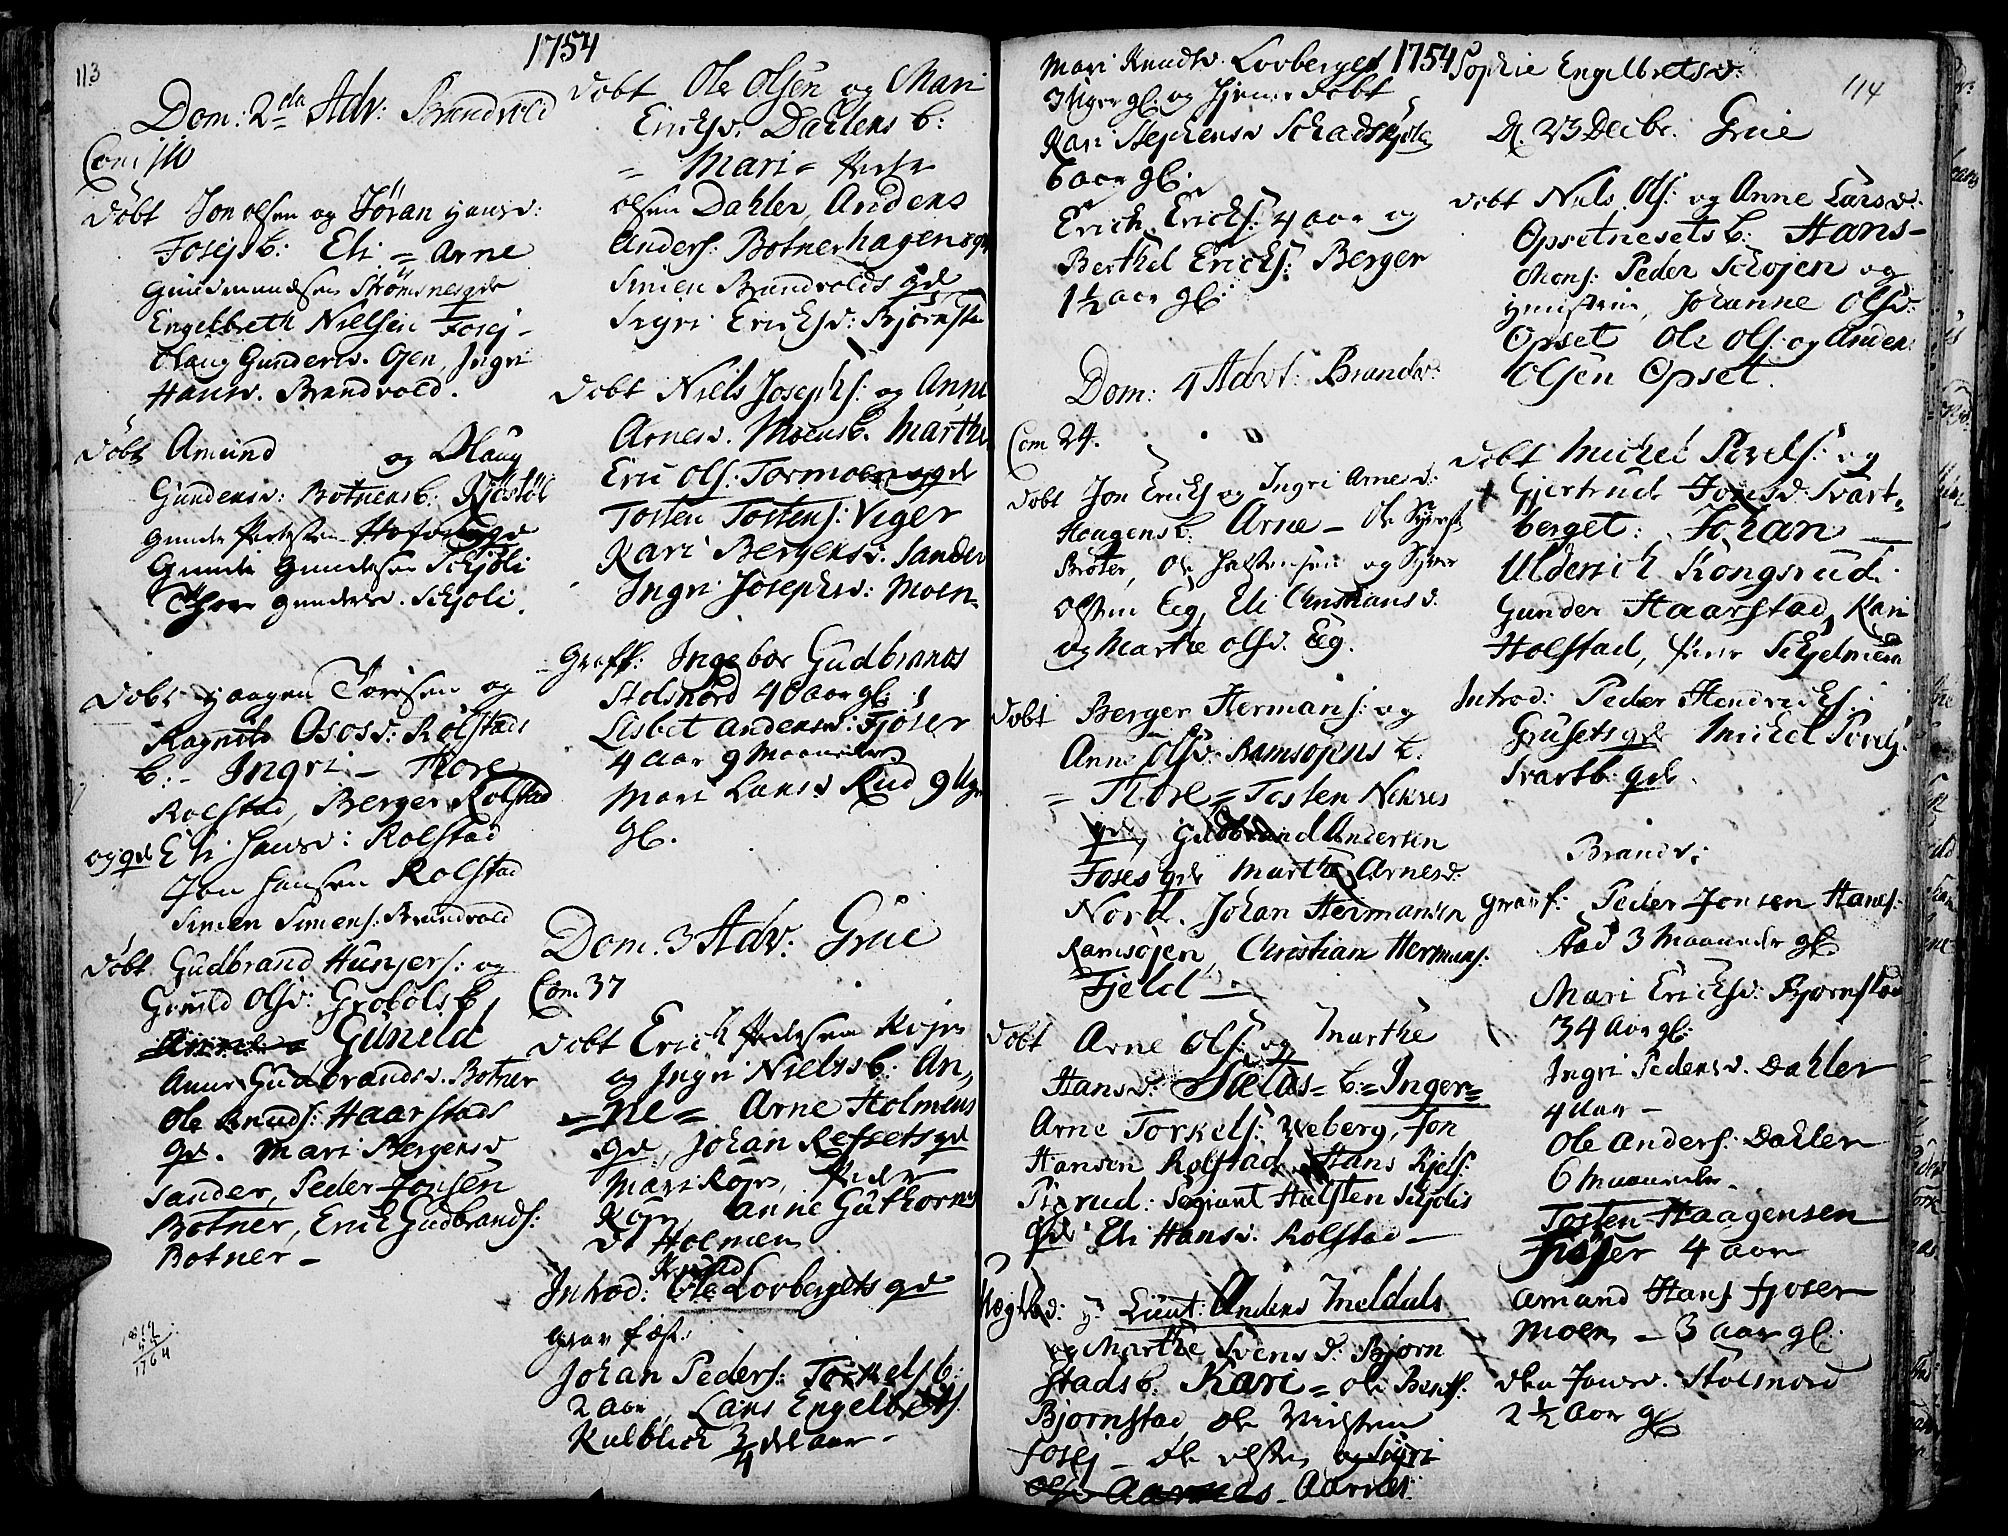 113
1754
Dom: 2da Adv: Brandvold
Com 110
Döbt Jon olsen og Jöran Hansd:
Fosejsb: Eli = Arne
Gudmundsen Strömsnesgde
Engelbreth Nielsen Fosej-
Olaug Gundersd. Gen, Ingri
Hansd. Brandvold.
Döbt Amund og Olaug
Gundersd: Botnersb: Kjöstöl
Gunder
Gunder Gundersen Schjöli
Thore Gundersd. Schjoli.
Döbt Haagen Torisen og
Ragnild Ososd: Rolstads
b: - Ingri - Thore
Rolstad, Berger Rolstad
og gde Eli Hansd: Rolstad
Jon Hansen Rolstad
Simen Simens: Brandvold
Döbt Gudbrand Hunsers: og
Gunild Olsd: Grobols b.
Gunild
Anne Gudbrandsd. Botner
Ole Knuds: Haarstads
gde. Mari Bergersd
Sander, Peder Jonsen
Botner, Erich Gudbrands:
Botner -
1764
Döbt Ole Olsen og Mari
Ericksd. Dahlens b:
= Mari =
olsen Dahler, Anders
Anders: Botnerhagens gde
Simen Brandvolds gde
Sigri Ericksd: Bjørnsta
Döbt Niels Josephs: og Anne
Arnesd. Moensb. Marthe
Eric Ols: Tormoens gde
Tosten Tostens: Viger
Kari Bergersd: Sander
Ingri Josephsd: Moen
Graff: Ingebor Gudbrands
Stolsnord 40 aar gl:
Lisbet Andersd: Fjöser
4 aar 9 Maaneder
Mari Larsd Rud 9 Uger
gl.
Dom. 3 Adv: Grue
Com 37
Döbt Erich Pedersen Rojn
og Ingri Nielsd b: An,
= ne = Arne Holmens
gde, Johan Ressets gde
Mari Rojn, Peder
Rojn, Anne Guthorms
d: Holmen
Knud
Introd: Ole Lovbergets gde
Grav fæst:
Johan Peders: Torkelsb:
2 aar, Lars Engelbrets
Kulblich 3/4 del aar -
Mari Knudsd. Lovberget 1754 Sophie Engelbretsd:
3 Uger gl: og Hjemedöbt
114
Kari Stephensd Schadskjole
6 aar gl:
Erich Ericks: 4 aar og
Berthel Ericks: Berger
1 1/2 aar gl:
Dom: 4 Advt: Brandv:
Com 24.
Döbt Jon Ericks og Ingri Arnesd:
Haagensb. Arne - Ole Syvers
Bröter, Ole Halstensen og Syver
olsen Eeg, Eli Christiansd.
og Marthe olsd. Eeg.
Döbt Berger Hermans: og
Anne Olsd: Ramsojens b.
= Thore = Tosten Nekres
gde, Gudbrand Andersen
Foses gde Marthe Arnesd:
Nord. Johan Hermansen
Ramsojen, Christian Hermans.
Fjeld -
Döbt Arne Ols: og Marthe
Hansd: Sætas = b: = Inger =
Arne Torkels: Weberg, Jon
Hansen Rolstad, Hans Kjels:
Pigrud: Sergiant Halsten Schjolis
gde Eli Hansd. Rolstad -
Uægtbd: Hr Lieut: Anders Meldals
og Marthe Svensd: Bjørn
stadsb. Kari = Ole Bents:
Bjornstad
Fosej - Ole olsen og Sigri
Aarnes
D. 23 Decbr. Grue
Döbt Niels Ols: og Anne Larsd:
Opsetnesets b: Hans -
Mons: Peder Schojen og
Hustru, Johanne Olsd:
Opset Ole Ols: og Anders
Olsen Opset.
Döbt Michel Povels: og
Gjertrud Jonsd: Svart-
berget: Johan -
Ulderich Kongsrud
Gunder Haarstad, Kari
Holstad, Schjelmem
Introd: Peder Hendricks:
Grusets gde Michel Povels:
Svartb: gde.
Brandv:
Grauf: Peder Jonsen Hanes:
stad 3 Maaneder gl:
Mari Ericksd: Bjornstad
34 Aar gl:
Ingri Pedersd. Dahler
4 aar -
Ole Anders: Dahler
6 Maaneder.
Tosten Haagensen
Fjöser 4 aar
Amund Hans fjoser
Moen - 3 aar gl:
Jonsd. Stolsnord
2 1/2 aar gl